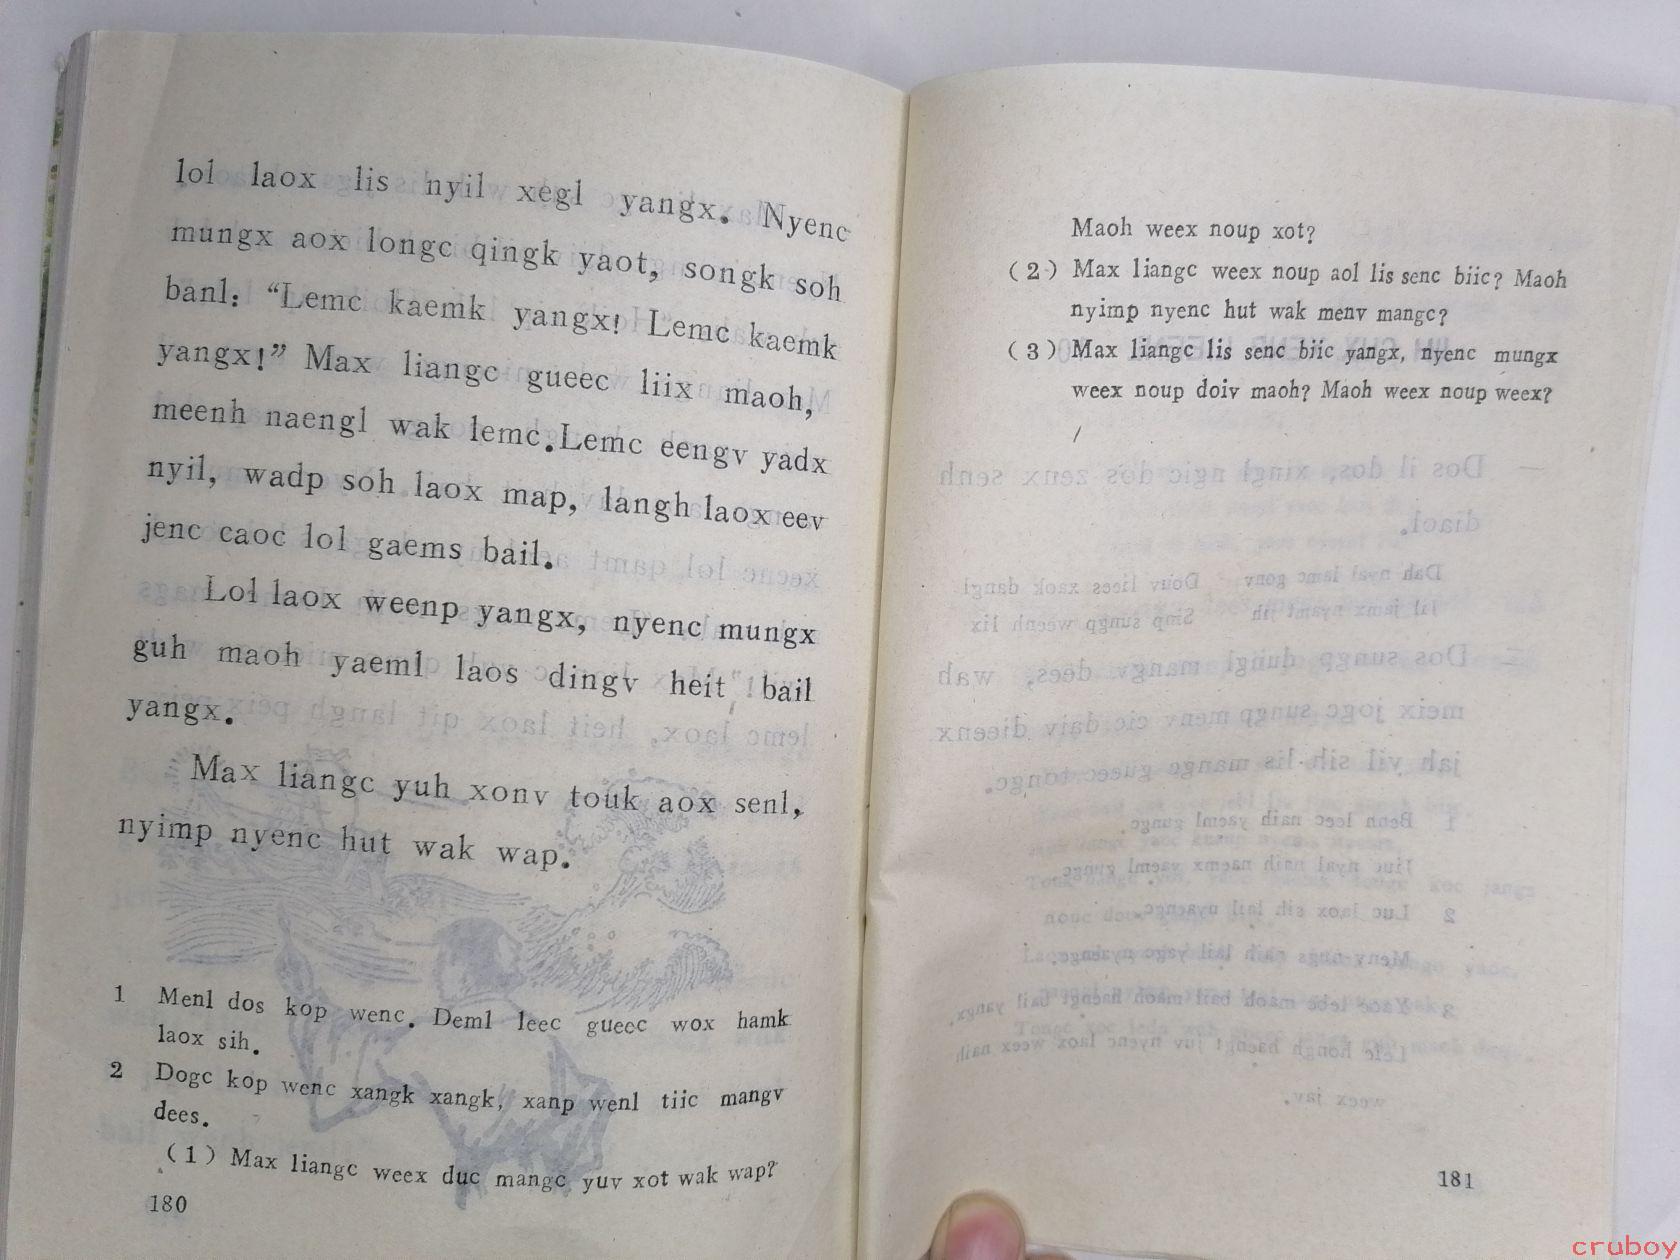 lol laox lis nyil xegl yangx. Nyenc
mungx aox longc qingk yaot, songk soh
banl: “Lemc kaemk yangx! Lemc kaemk
yangx!” Max liangc gueec liix maoh,
meenh naengl wak lemc. Lemc eengv yadx
nyil, wadp soh laox map, langh laox eev
jenc caoc lol gaems bail.
Lol laox weenp yangx, nyenc mungx
guh maoh yaeml laos dingv heit bail
yangx.
Max liangc yuh xonv touk aox senl,
nyimp nyenc hut wak wap.
1 Menl dos kop wenc. Deml leec gueec wox hamk
laox sih.
2 Dogc kop wenc xangk xangk, xanp wenl tiic mangv
dees.
(1) Max liangc weex duc mangc yuv xot wak wap?
180
Maoh weex noup xot?
(2) Max liangc weex noup aol lis senc biic? Maoh
nyimp nyenc hut wak menv mangc?
(3) Max liangc lis senc biic yangx, nyenc mungx
weex noup doiv maoh? Maoh weex noup weex?
181
cruboy